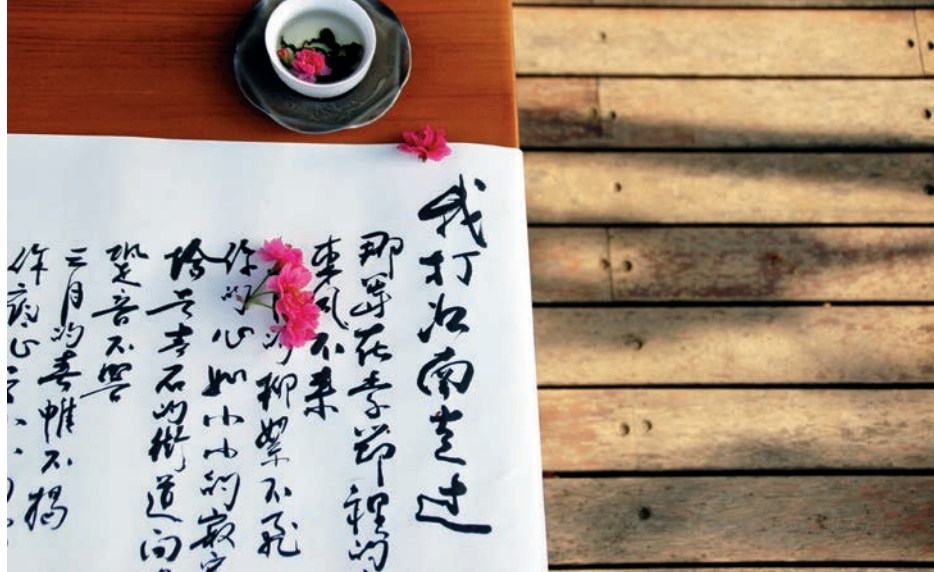 我打江南走过
那等在季節裡的
東風不来
的柳絮不飛
你的心如小小的寂
恰若青石的街道向
跫音不響
三月的春帷不揭
你底心